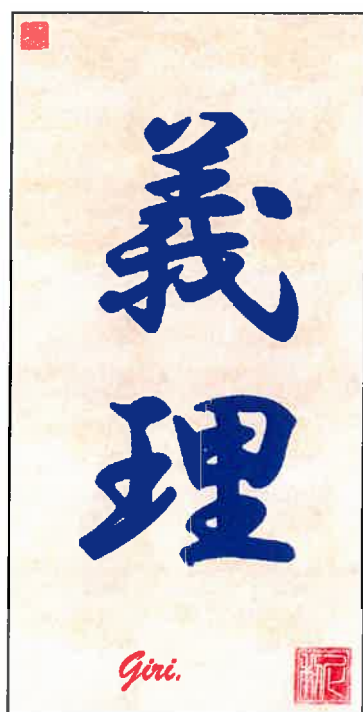 義
理
Giri.